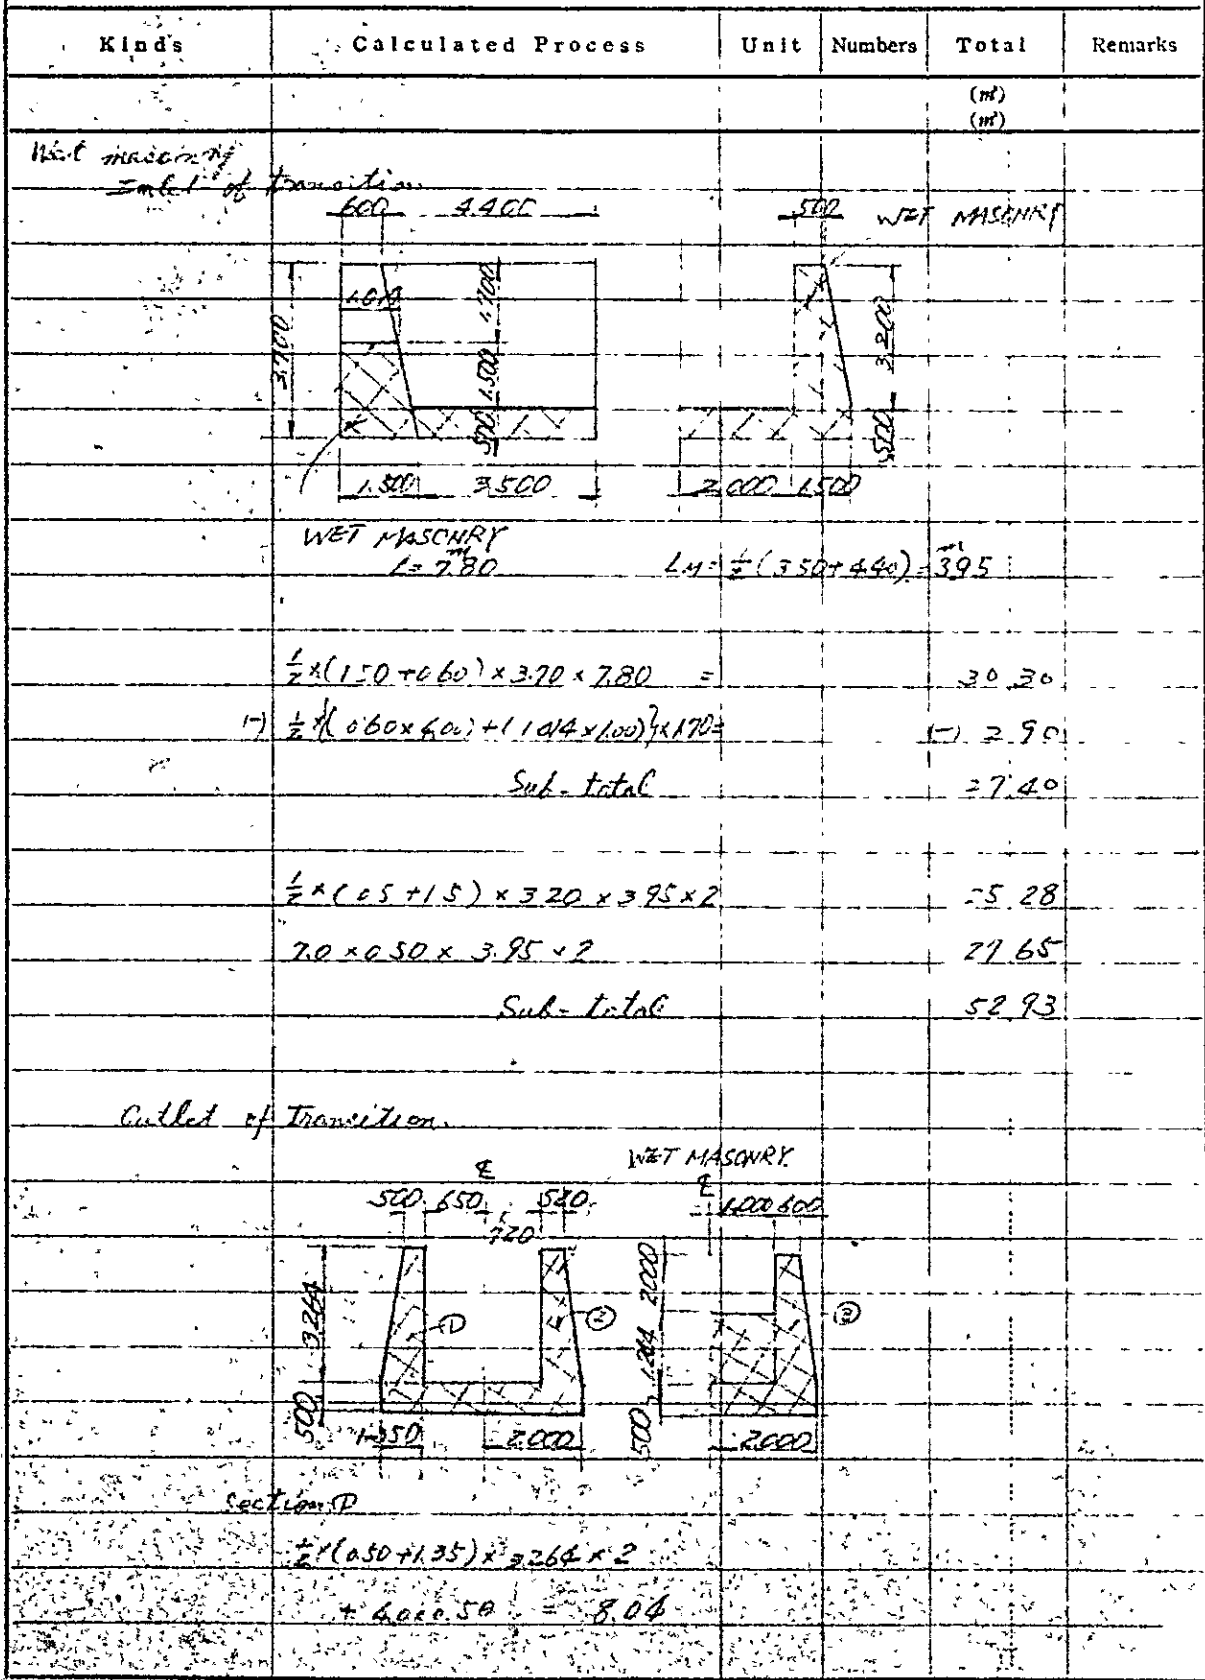 Kinds Calculated Process Unit Numbers Total Remarks
(m³)
(m³)
Wet masonry
Inlet of transition
600 4.400 500 WET MASONRY
3.700 1.700 1.500 500 3.200 500
1.500 3.500 2.000 1.500
WET MASONRY
L= 7.80m LM= 1/2 (3.50+4.40)=3.95m
1/2×(1.50+0.60)×3.70×7.80 = 30.30
(-) 1/2×{(0.60×1.00)+(1.014×1.00)}×1.70= (-) 2.90
Sub-total 27.40
1/2×(0.5+1.5)×3.20×3.95×2 25.28
7.0×0.50×3.95×2 27.65
Sub-total 52.93
Outlet of Transition.
WET MASONRY.
500 650 ℄ 520 ℄ 1.000 600
720
3.264 500 ① ② 2000 1.264 500 ②
1.350 2.000 2.000
Section ①
1/2×(0.50+1.35)×3.264×2
+ 4.0×0.50 = 8.04